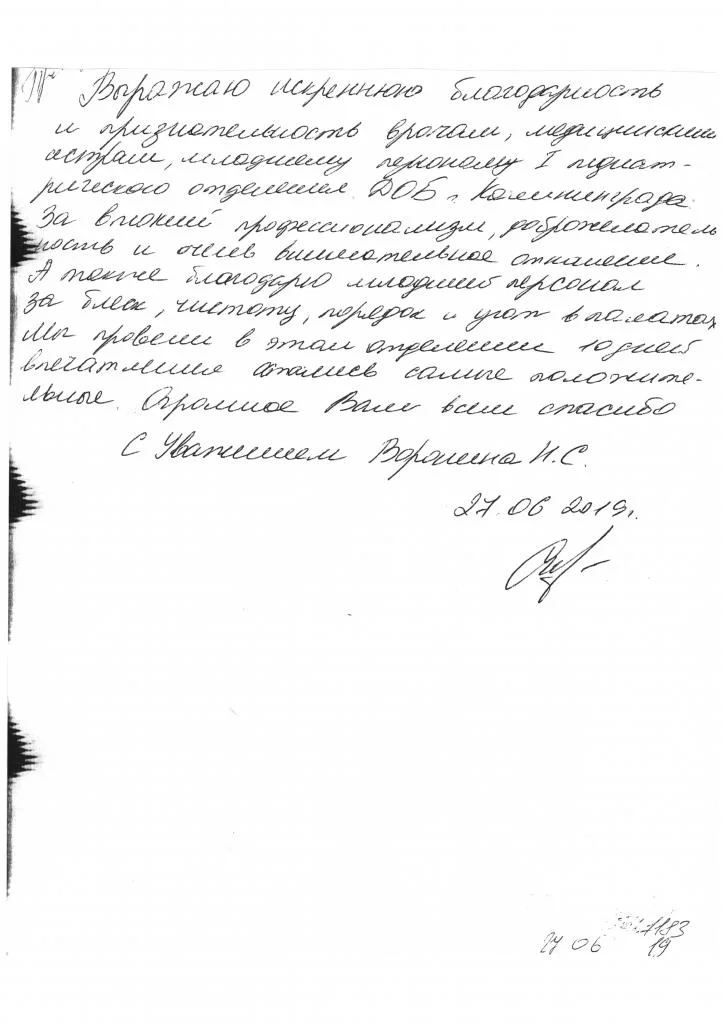 Выражаю искреннюю благодарность
и признательность врачам, медицинским
сестрам, младшему персоналу I педиат-
рического отделения ДОБ г. Калининграда
За высокий профессионализм, доброжелатель
ность и очень внимательное отношение.
А также благодарю младший персонал
за блеск, чистоту, порядок и уют в палатах
Мы провели в этом отделении 10 дней
впечатления остались самые положите-
льные. Огромное Вам всем спасибо
С Уважением Воронина Н.С.
27.06 2019г.
27 06 19